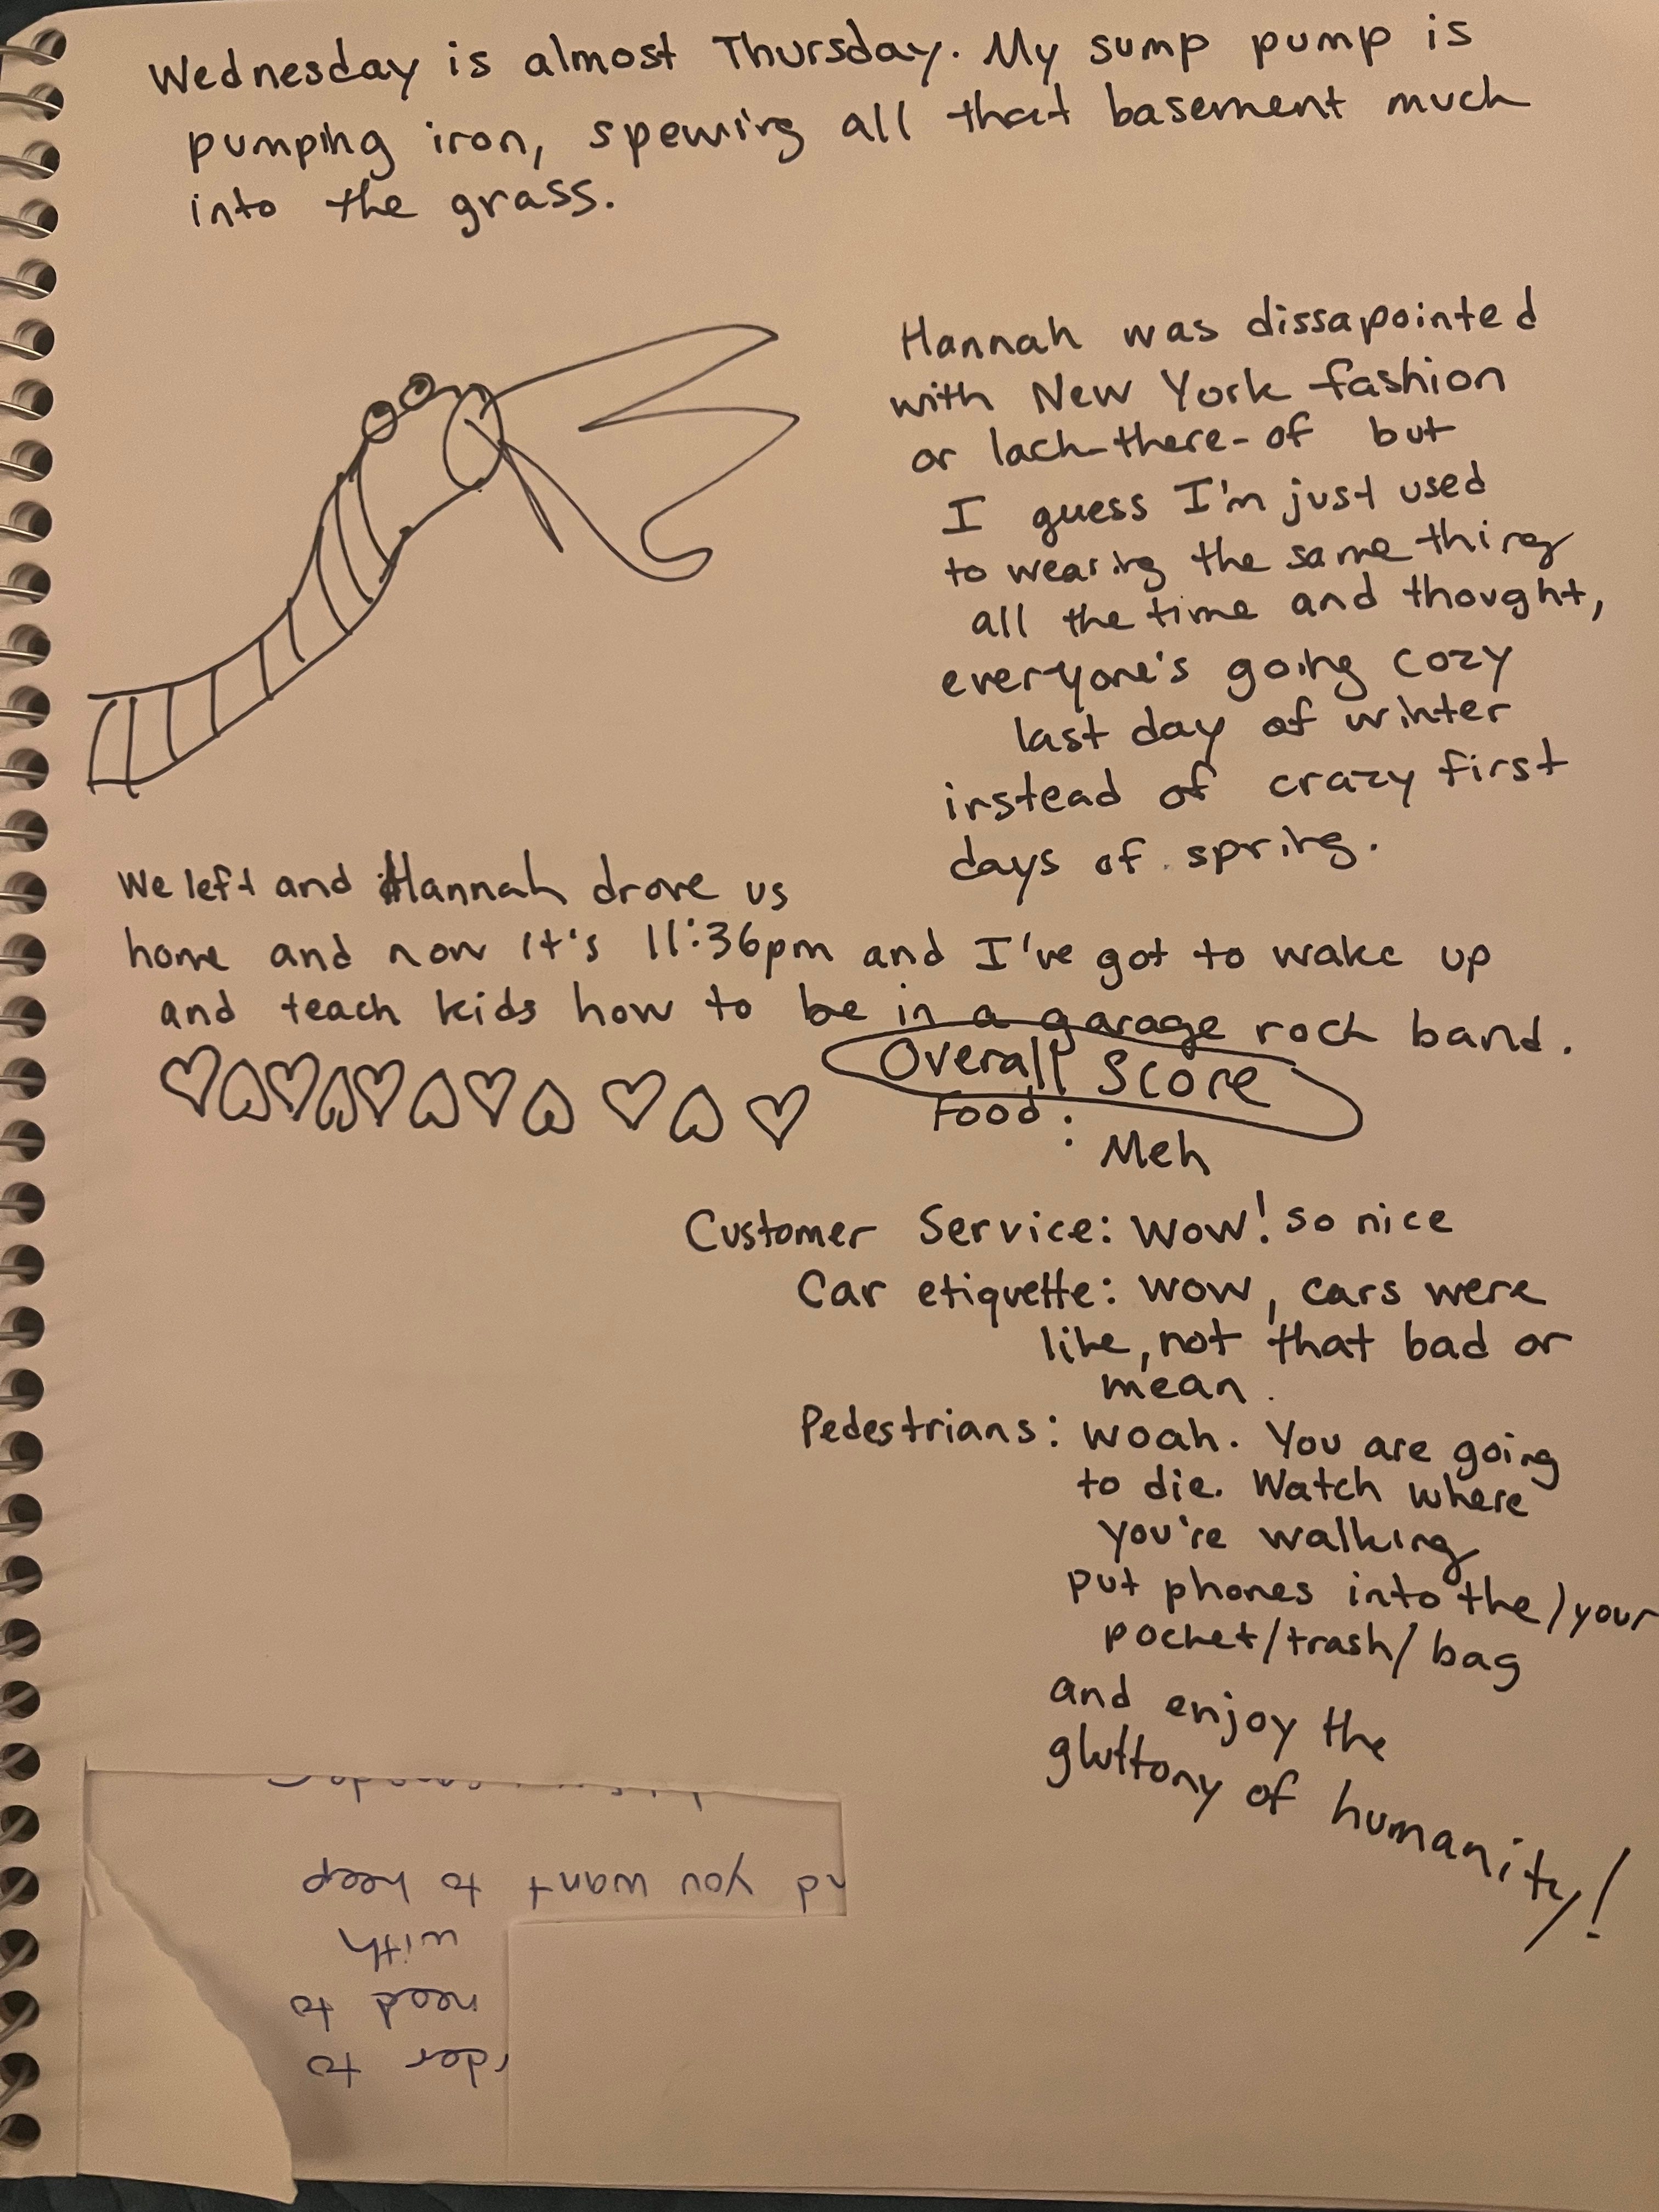 Wednesday is almost Thursday. My sump pump is
pumping iron, spewing all that basement much
into the grass.
Hannah was dissapointed
with New York fashion
or lach-there-of but
I guess I'm just used
to wearing the same thing
all the time and thought,
everyone's going cozy
last day of winter
instead of crazy first
days of spring.
We left and Hannah drove us
home and now it's 11:36pm and I've got to wake up
and teach kids how to be in a garage rock band.
Overall Score
Food: Meh
Customer Service: Wow! so nice
Car etiquette: Wow, cars were
like, not that bad or
mean.
Pedestrians: Woah. You are going
to die. Watch where
you're walking
put phones into the/your
pocket/trash/bag
and enjoy the
gluttony of humanity!
der to
need to
with
nd you want to keep